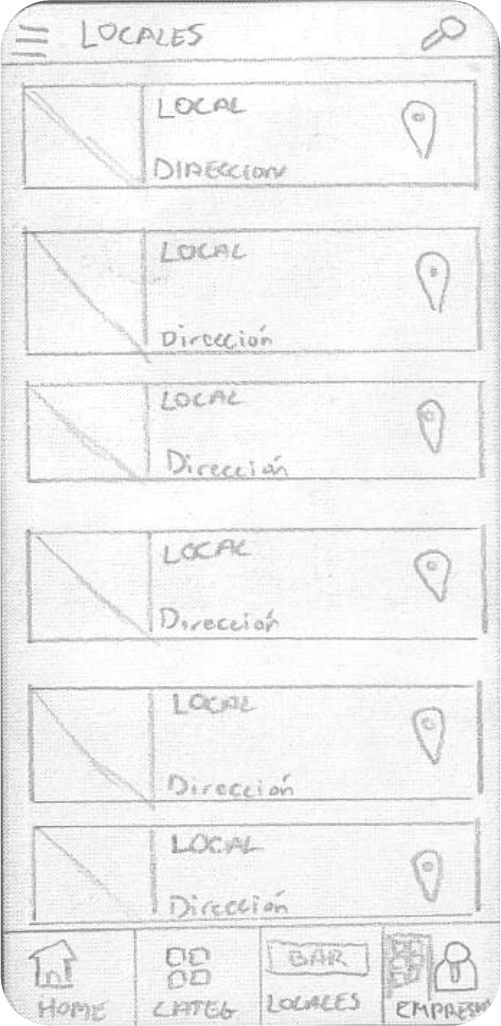 LOCALES
LOCAL
DIRECCION
LOCAL
Dirección
LOCAL
Dirección
LOCAL
Dirección
LOCAL
Dirección
LOCAL
Dirección
BAR
HOME
CATEG
LOCALES